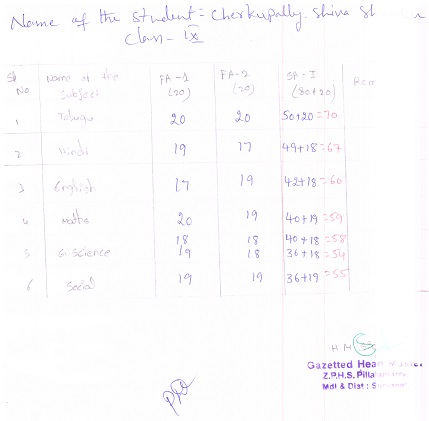 Name of the Student:- Cherkupally. Shiva
Class - IX
Sl No Name of the Subject FA-1 (20) FA-2 (20) SA-I (80+20)
1 Telugu 20 20 50+20=70
2 Hindi 19 17 49+18=67
3 English 17 19 42+18=60
4 Maths 20 19 40+19=59
18 18 40+18=58
5 G. Science 19 18 36+18=54
6 Social 19 19 36+19=55
HM
Gazetted Head
Z.P.H.S.
Mdl & Dist :